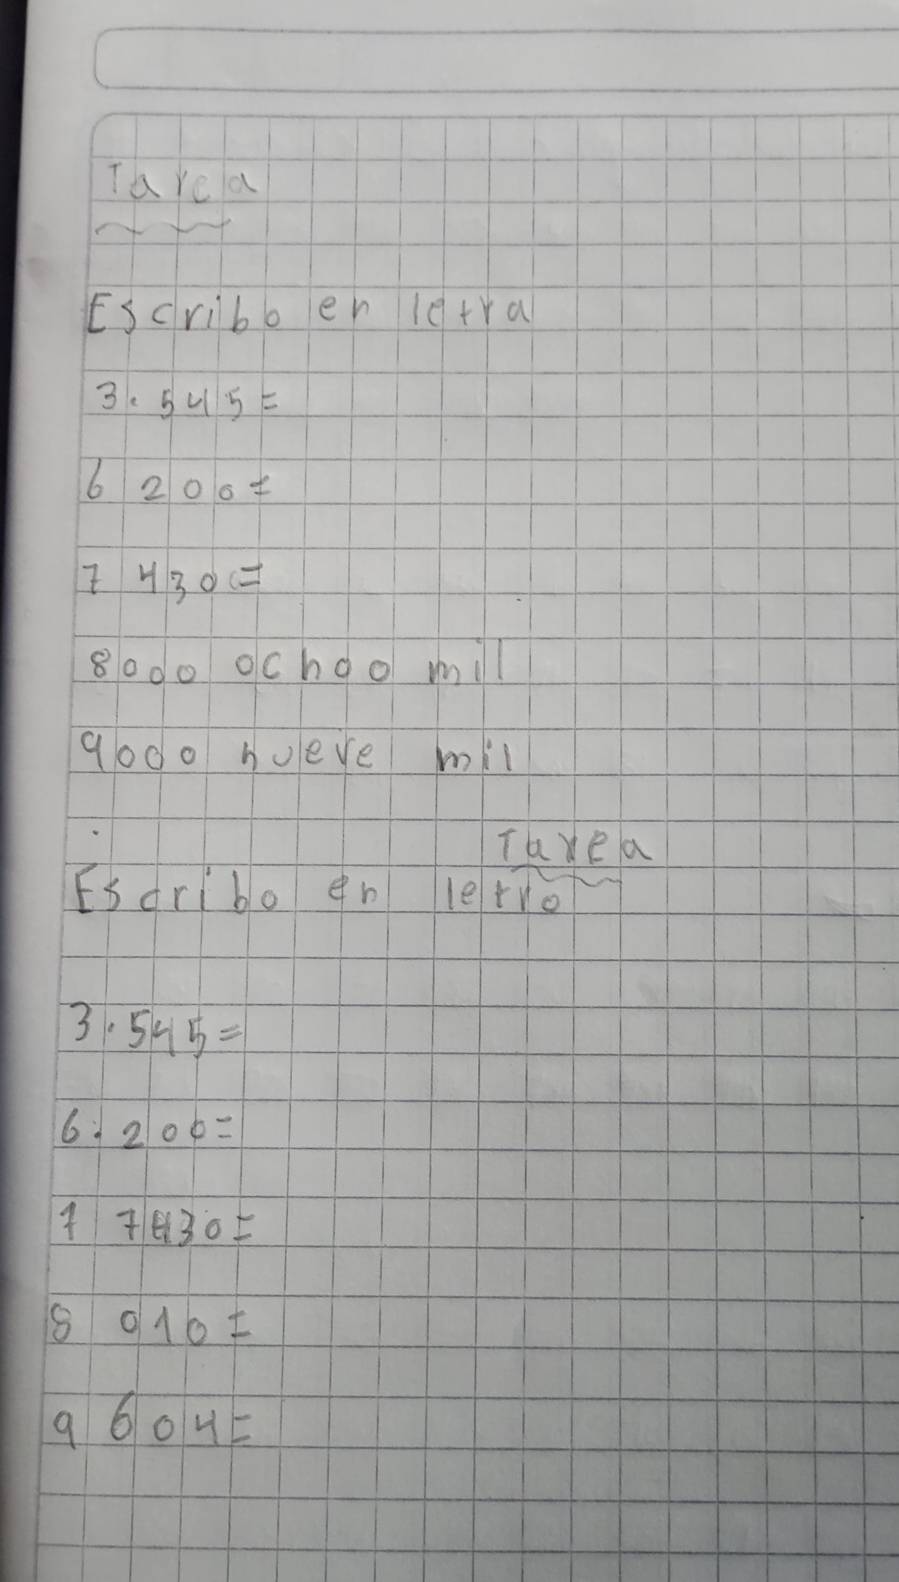 Tarea
Escribo en letra
3.545=
6 200=
7 430=
8000 ochoo mil
9000 nueve mil
Tarea
Escribo en letra
3.545=
6.200=
7 7430=
8 010=
9 604=